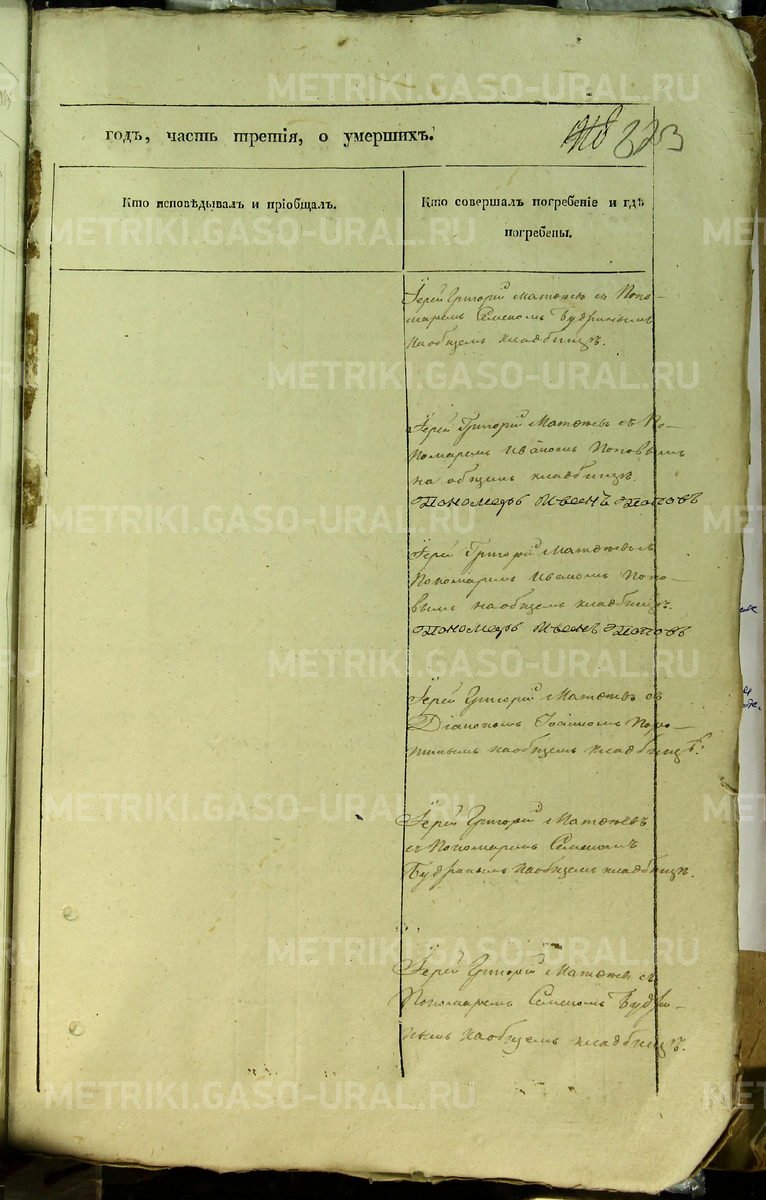 METRIKI.GASO-URAL.RU
годъ, часть третія, о умершихъ.
323
Кто исповѣдывалъ и пріобщалъ.
Кто совершалъ погребеніе и гдѣ
погребены.
Іерей Григорій Матѳѣевъ съ Поно-
маремъ Семеномъ Будринымъ
на общемъ кладбищѣ.
Іерей Григорій Матѳѣевъ съ По-
номаремъ Иваномъ Поповымъ
на общемъ кладбищѣ.
Пономарь Иванъ Поповъ
Іерей Григорій Матѳѣевъ съ
Пономаремъ Иваномъ Попо-
вымъ на общемъ кладбищѣ.
Пономарь Иванъ Поповъ
Іерей Григорій Матѳѣевъ съ
Діакономъ Іоанномъ
на общемъ кладбищѣ.
Іерей Григорій Матѳѣевъ
съ Пономаремъ Семеномъ
Будринымъ на общемъ кладбищѣ.
Іерей Григорій Матѳѣевъ съ
Пономаремъ Семеномъ Будри-
нымъ на общемъ кладбищѣ.